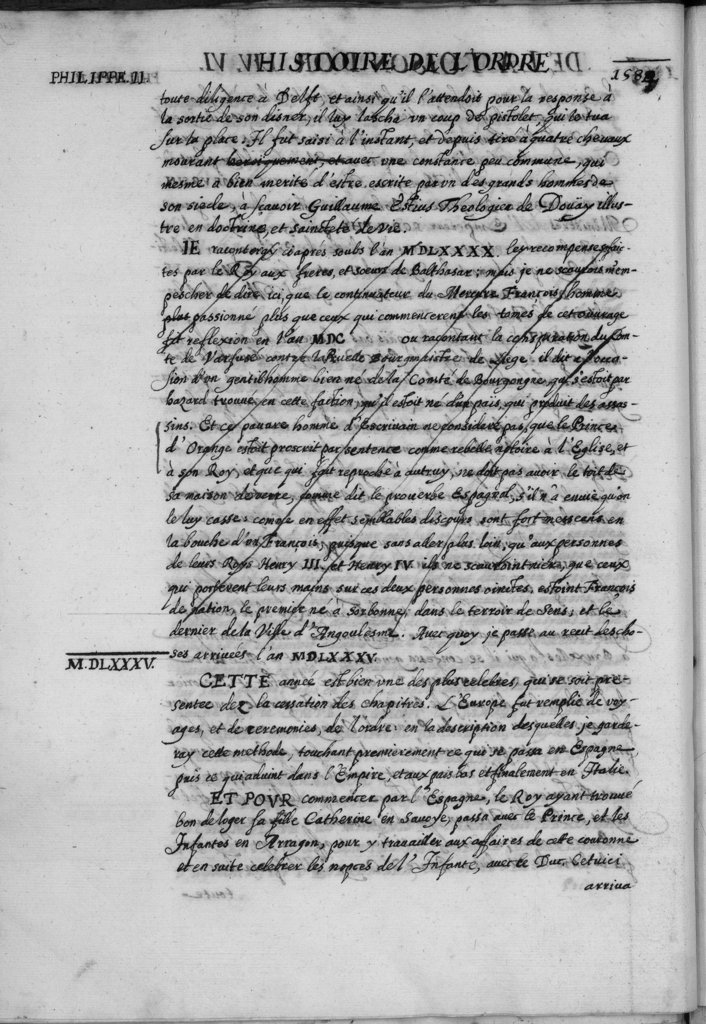 HISTOIRE DE L'ORDRE
PHILIPPE II.
1584
toute diligence à Delft, et ainsi qu'il l'attendoit pour la response à
la sortie de son disner, il luy lasché vn coup de pistolet, qui le tua
sur la place. Il fut saisi à l'instant, et depuis tiré à quatre chevaux
mourant heroiquement, et avec vne constance peu commune, qui
mesme à bien merité d'estre escrite par vn des grands hommes de
son siecle, à sçavoir Guillaume Estius Theologien de Douay illus-
tre en doctrine, et saincteté de vie.
IE raconteray cÿaprés soubs l'an MDLXXXX. les recompenses fai-
tes par le Roy aux freres, et sœurs de Balthasar; mais je ne sçaurois m'em-
pescher de dire ici, que le continuateur du Mercure François, homme
plus passionné plus que ceux qui commencerent les tomes de cet ouvrage
fit reflexion en l'an MDC ou racontant la conspiration du Com-
te de Varfusé contre la Ruelle Bourgmaistre de Liege. il dit à l'occa-
sion d'vn gentilhomme bien né de la Comté de Bourgongne, qui s'estoit par
hazard trouué en cette faction, qu'il estoit né d'un païs, qui produit des assas-
sins. Et ce pauvre homme d'Escrivain ne considere pas, que le Prince
d'Orange estoit proscrit par sentence comme rebelle notoire à l'Eglise, et
à son Roy, et que qui fait reproche à autruy, ne doit pas avoir le toit de
sa maison de verre, comme dit le proverbe Espagnol, s'il n'à envie qu'on
le luy casse: comme en effet semblables discours sont fort messeans en
la bouche d'vn François, puisque sans aller plus loin, qu'aux personnes
de leurs Roys Henry III. et Henry IV ils ne sçauroint nier, que ceux
qui porterent leurs mains sur ces deux personnes ointes, estoint François
de nation, le premier né à Sorbonne, dans le terroir de Sens, et le
dernier de la Ville d'Angoulesme. Avec quoy je passe au recit des cho-
ses arrivées l'an MDLXXXV.
M.DLXXXV.
CETTE année est bien vne des plus celebres, qui se soit pre-
sentee dez la cessation des chapitres. L'Europe fut remplie de voy-
ages, et de ceremonies, de l'ordre en la description desquelles je garde-
ray cette methode, touchant premierement ce qui se passa en Espagne
puis ce qui aduint dans l'Empire, et aux païs bas et finalement en Italie.
ET POVR commencer par l'Espagne, le Roy ayant trouué
bon de loger sa fille Catherine en Savoye, passa avec le Prince, et les
Infantes en Arragon, pour y travailler aux affaires de cette couronne
et en suite celebrer les nopces de l'Infante, avec le Duc. Cetuici
arriva